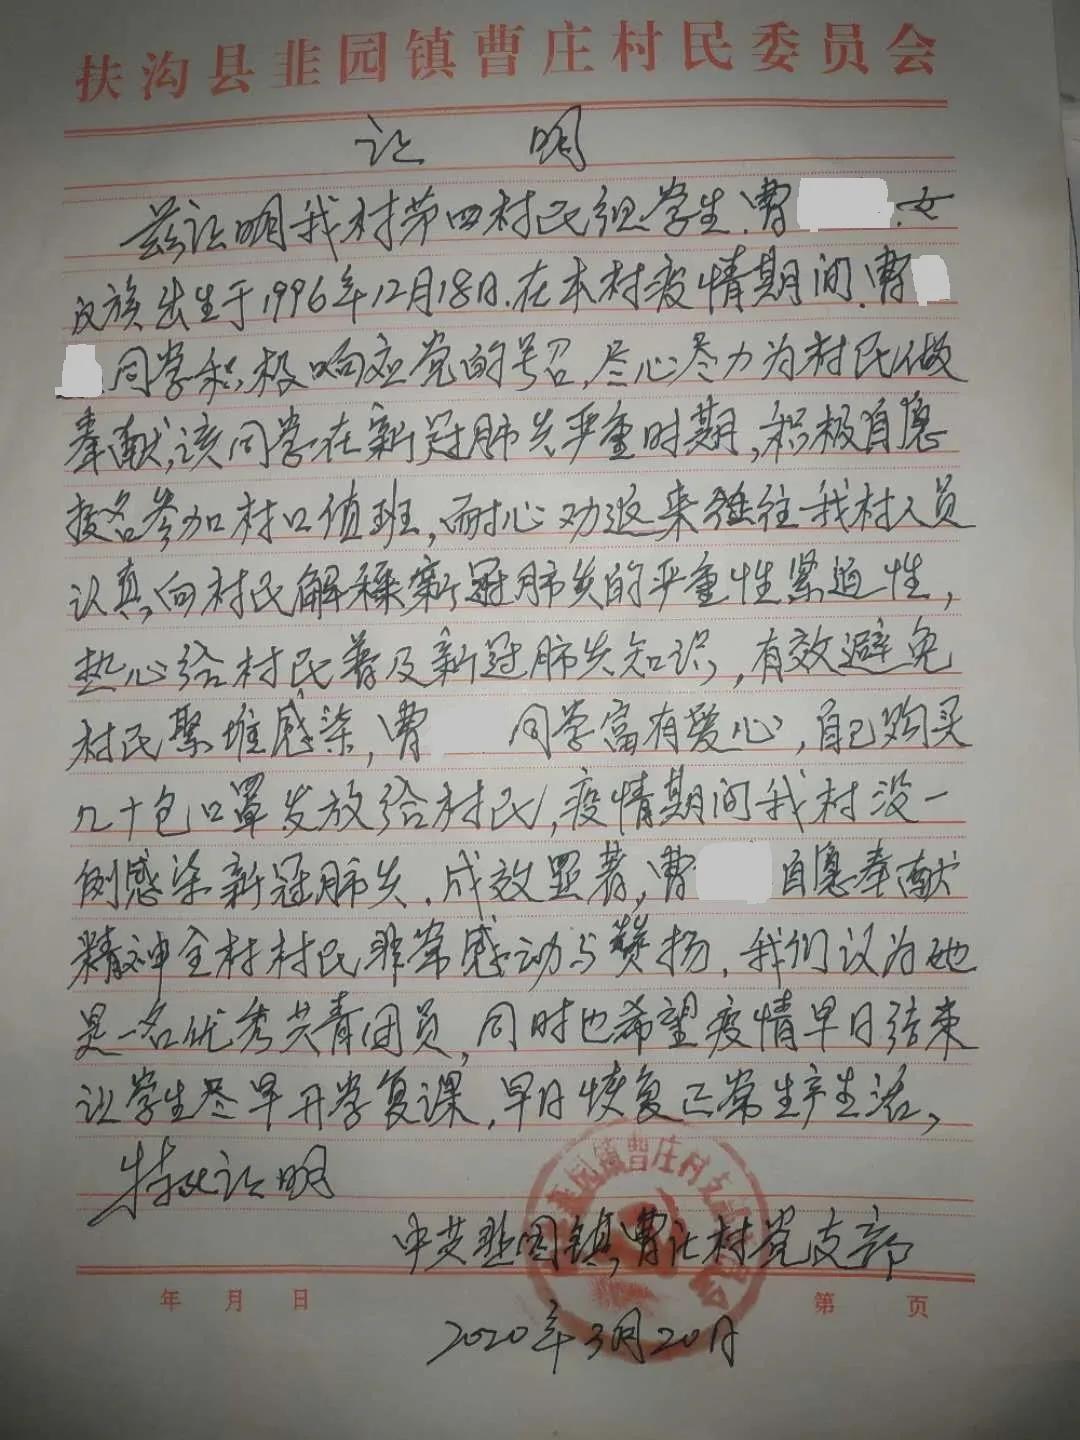 扶沟县韭园镇曹庄村民委员会
证 明
兹证明我村第四村民组学生.曹 .女
汉族出生于1996年12月18日.在本村疫情期间.曹
同学积极响应党的号召,尽心尽力为村民做
奉献,该同学在新冠肺炎严重时期,积极自愿
报名参加村口值班,耐心劝返来往我村人员
认真向村民解释新冠肺炎的严重性紧迫性,
热心给村民普及新冠肺炎知识,有效避免
村民聚堆感染,曹 同学富有爱心,自己购买
几十包口罩发放给村民,疫情期间我村没一
例感染新冠肺炎.成效显著,曹 自愿奉献
精神全村村民非常感动与赞扬,我们认为她
是一名优秀共青团员,同时也希望疫情早日结束
让学生尽早开学复课,早日恢复正常生产生活,
特此证明
韭园镇曹庄村支部
中共韭园镇曹庄村党支部
年 月 日 第 页
2020年3月20日